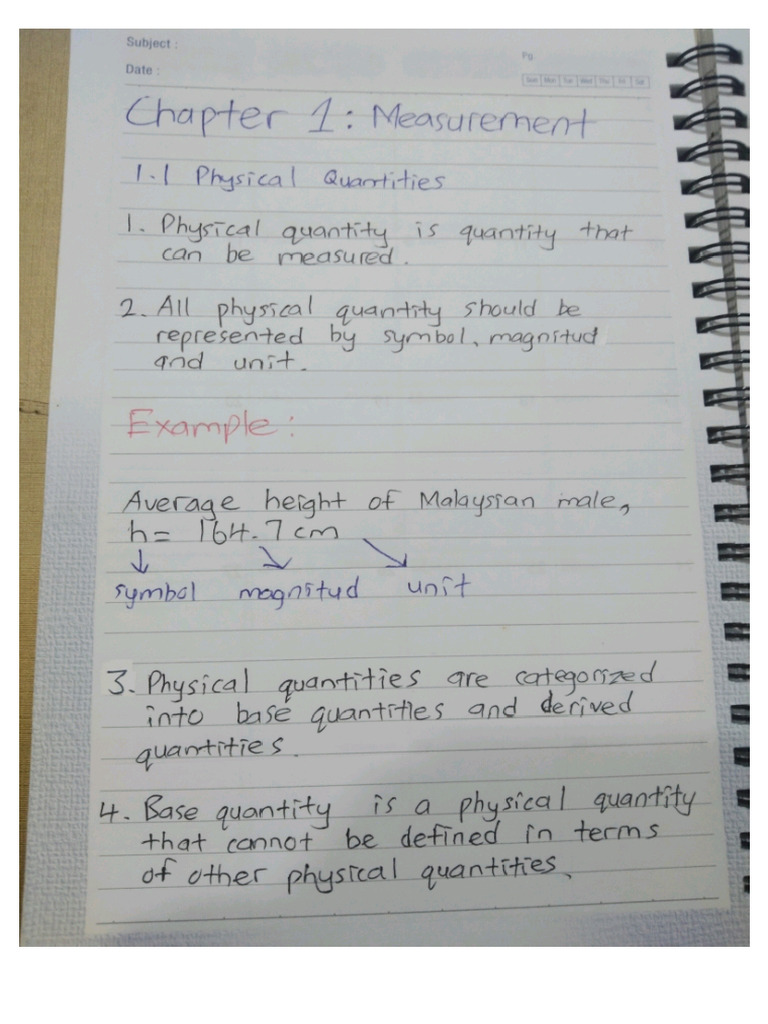 Subject :
Pg
Date :
Sun Mon Tue Wed Thu Fri Sat
Chapter 1: Measurement
1.1 Physical Quantities
1. Physical quantity is quantity that
can be measured.
2. All physical quantity should be
represented by symbol, magnitud
and unit.
Example:
Average height of Malaysian male,
h = 164.7 cm
symbol magnitud unit
3. Physical quantities are categorized
into base quantities and derived
quantities.
4. Base quantity is a physical quantity
that cannot be defined in terms
of other physical quantities.